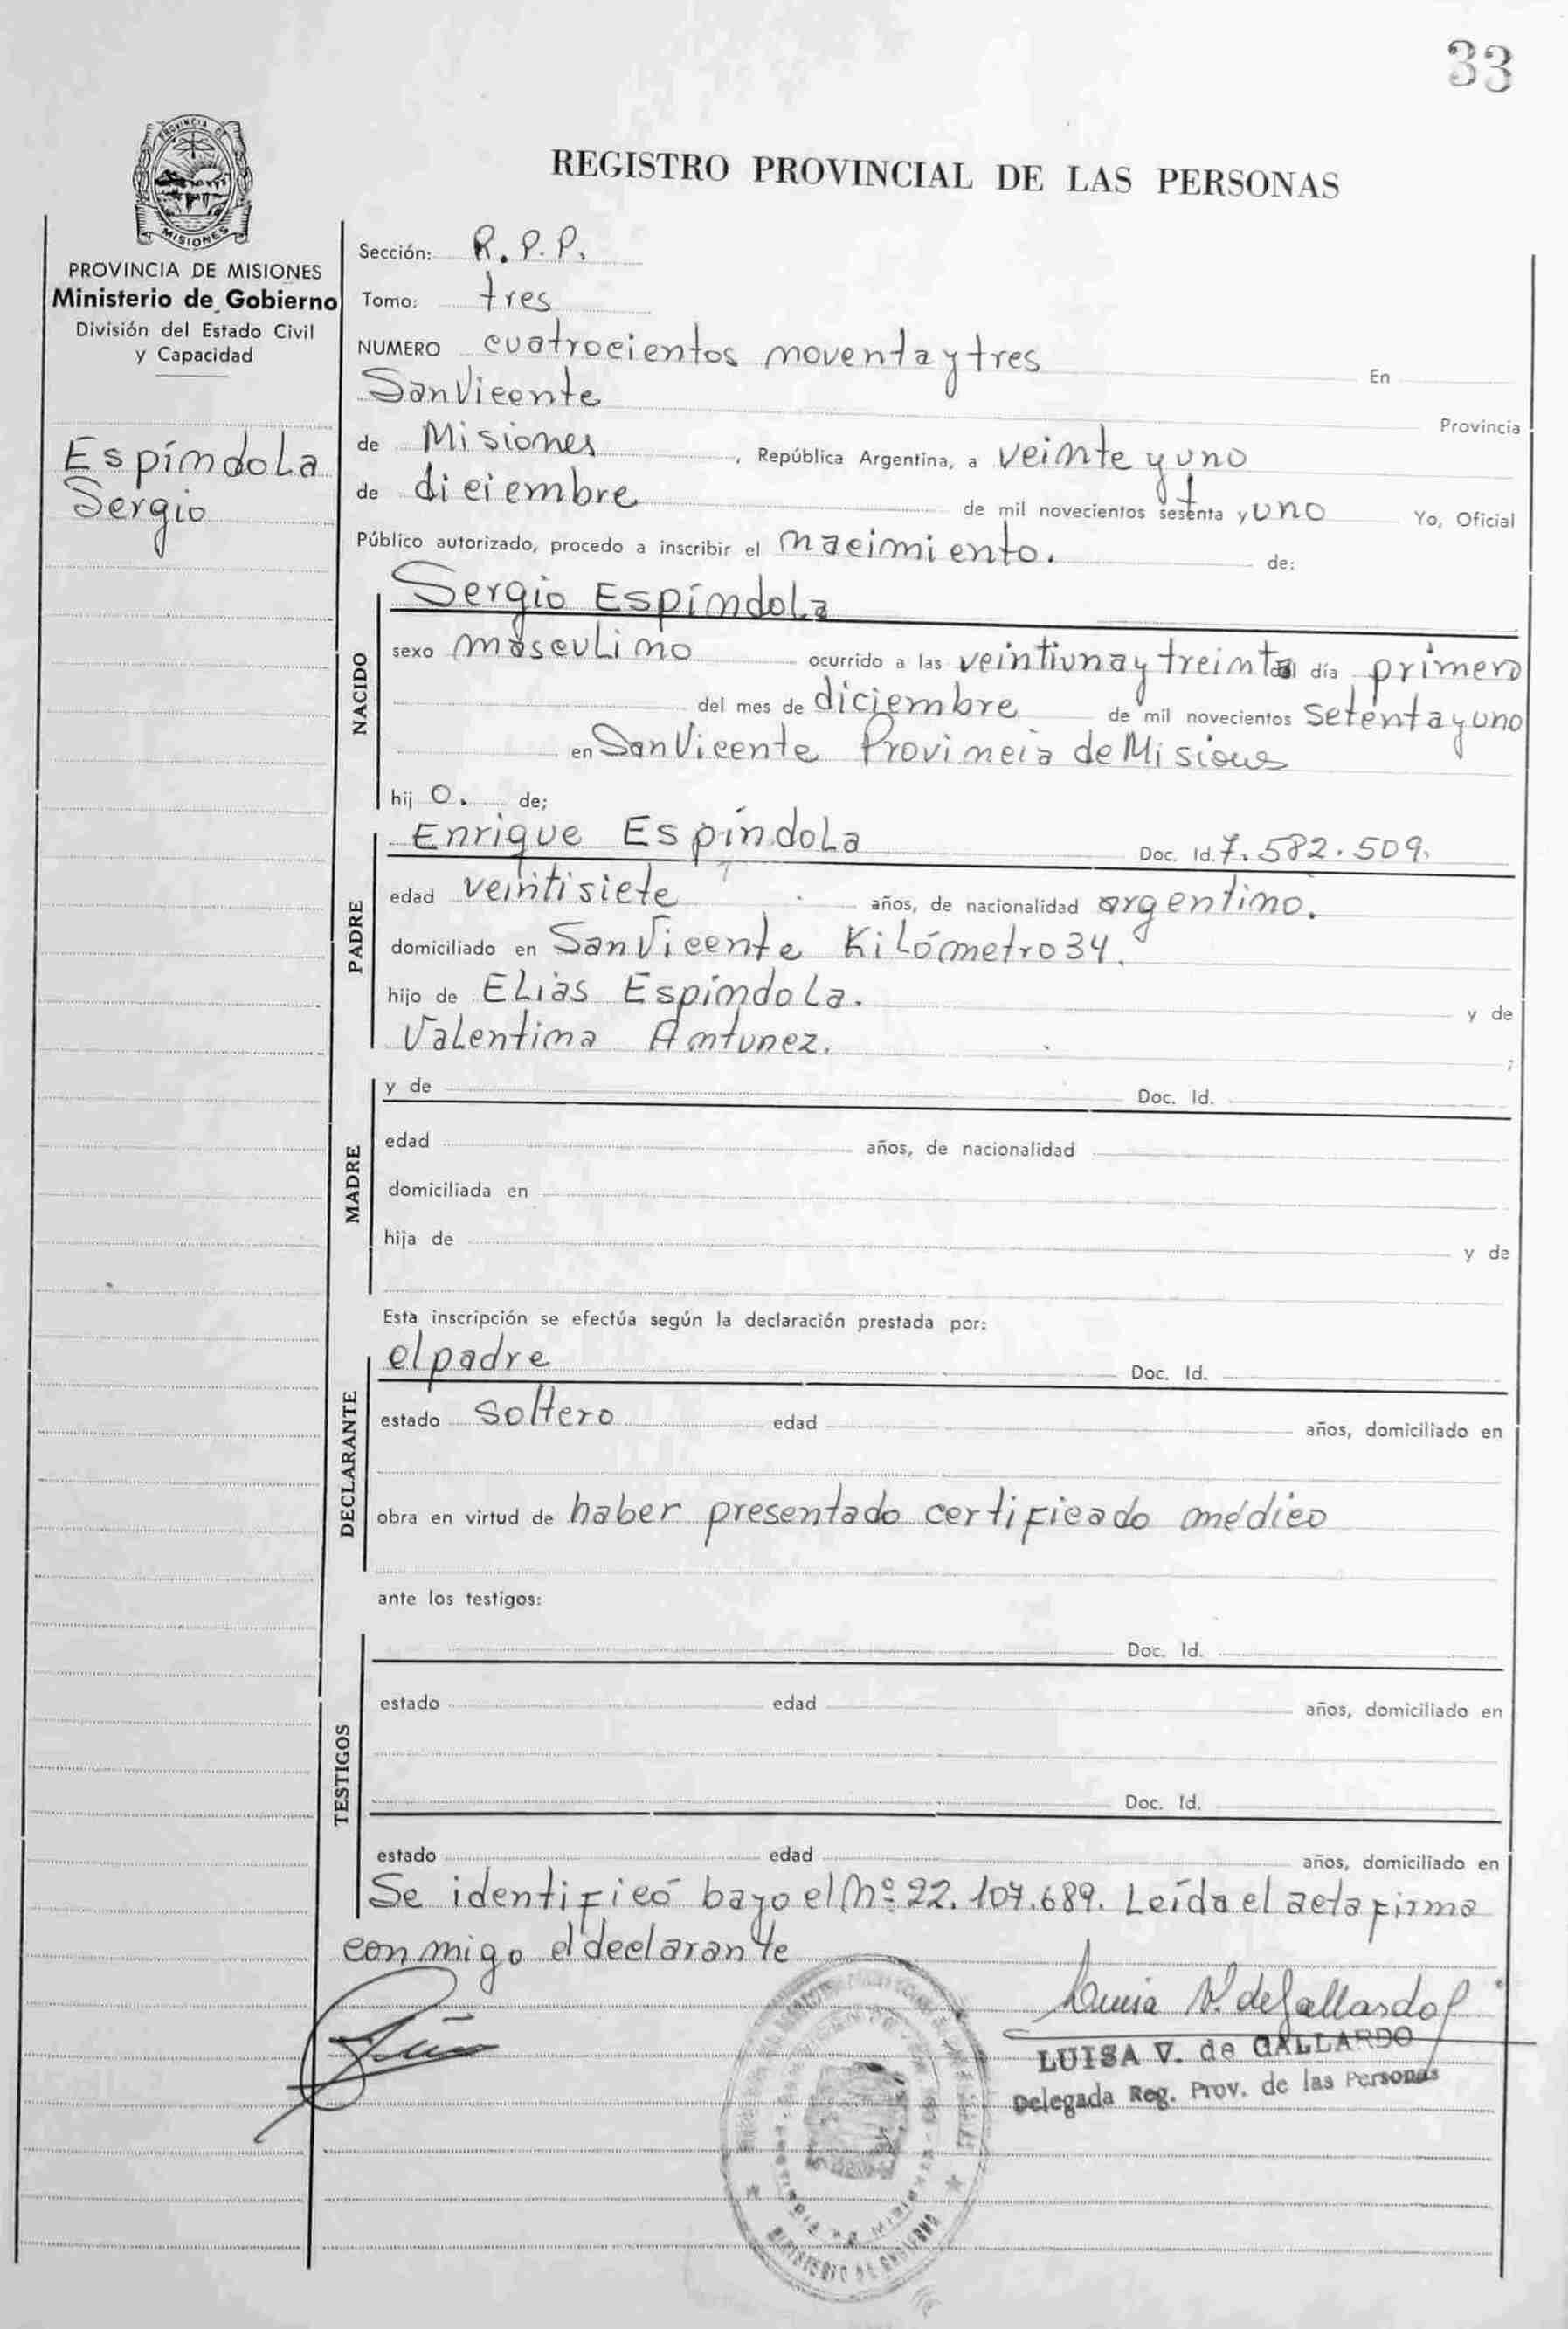 33
PROVINCIA DE
MISIONES
REGISTRO PROVINCIAL DE LAS PERSONAS
PROVINCIA DE MISIONES
Ministerio de Gobierno
División del Estado Civil
y Capacidad
Espíndola
Sergio
Sección: R. P. P.
Tomo: tres
NUMERO cuatrocientos noventa y tres En
San Vicente Provincia
de Misiones, República Argentina, a veinte y uno
de diciembre de mil novecientos setenta y uno Yo, Oficial
Público autorizado, procedo a inscribir el nacimiento. de:
NACIDO
Sergio Espíndola
sexo masculino ocurrido a las veintiuna y treinta día primero
del mes de diciembre de mil novecientos setenta y uno
en San Vicente Provincia de Misiones
hij o. de;
PADRE
Enrique Espíndola Doc. Id. 7.582.509.
edad veintisiete años, de nacionalidad argentino.
domiciliado en San Vicente Kilómetro 34.
hijo de Elias Espíndola. y de
Valentina Antunez. ;
MADRE
y de Doc. Id.
edad años, de nacionalidad
domiciliada en
hija de y de
Esta inscripción se efectúa según la declaración prestada por:
DECLARANTE
el padre Doc. Id.
estado soltero edad años, domiciliado en
obra en virtud de haber presentado certificado médico
ante los testigos:
TESTIGOS
Doc. Id.
estado edad años, domiciliado en
Doc. Id.
estado edad años, domiciliado en
Se identificó bajo el Nº 22.107.689. Leída el acta firma
conmigo el declarante
Luisa V. de Gallardo
LUISA V. de GALLARDO
Delegada Reg. Prov. de las Personas
MINISTERIO DE GOBIERNO